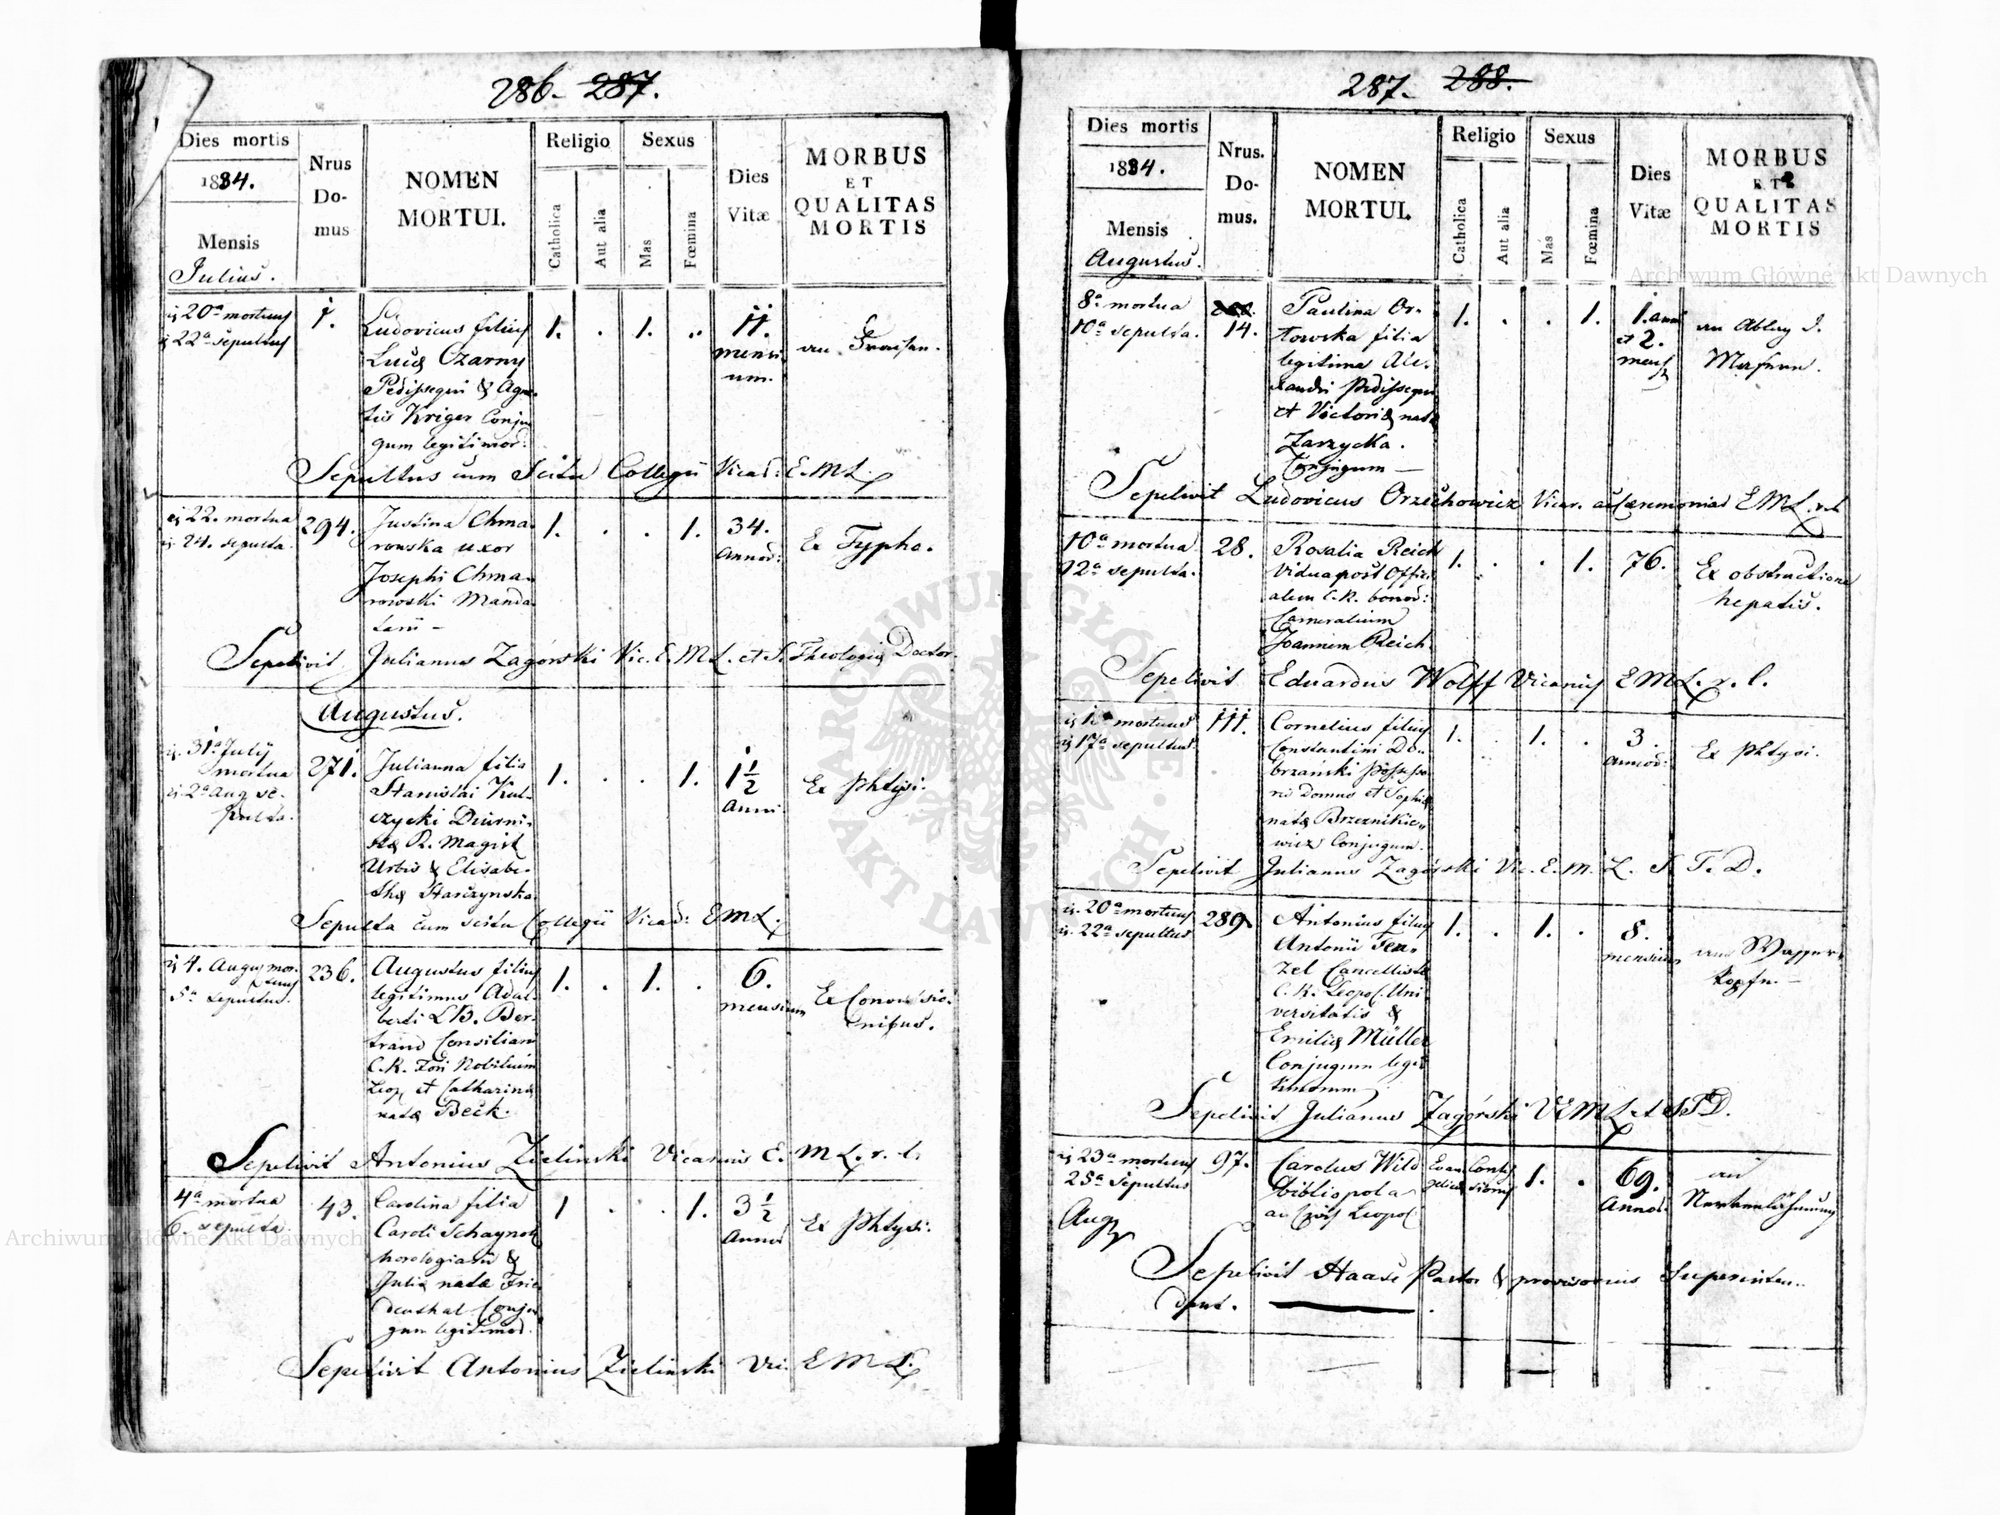 286. 287.
Dies mortis
1834.
Mensis
Julius.
Nrus
Do-
mus
NOMEN
MORTUI.
Religio
Catholica
Aut alia
Sexus
Mas
Fœmina
Dies
Vitæ
MORBUS
ET
QUALITAS
MORTIS
20a mortuus
22a sepultus
1.
Ludovicus filius
Lucæ Czarny
Pedissequi & Agne-
tis Kriger Conju
gum legitimor:
1. . 1. ..
11.
mensi
um.
an Fraisen.
Sepultus cum Scitu Collegii Vicar: E.M.L.
22. mortua
24. sepulta.
294.
Justina Chma-
rowska uxor
Josephi Chma-
rowski Manda-
tarii –
1. . . 1.
34.
Annor:
Ex Typho.
Sepelivit Julianus Zagórski Vic. E. M L. et S. Theologiæ Doctor.
Augustus.
31a July
mortua
2a Aug se-
pulta.
271.
Julianna filia
Stanislai Kul-
czycki Diurni-
stæ P. Magist
Urbis & Elisabe-
thæ Starczynska
1. . . 1.
1 1/2
Anni
Ex Phtysi.
Sepulta cum scitu Collegii Vicar: E M L.
4. Augus mor-
tuus
5a sepultus.
236.
Augustus filius
legitimus Adal-
berti LB. Ber-
trand Consiliarii
C.R. Fori Nobilium
Leop. et Catharinæ
natæ Beck.
1. . 1. .
6.
mensium
Ex Convulsio-
nibus.
Sepelivit Antonius Zielinski Vicarius E. M L. r. l.
4a mortua
6. sepulta.
43.
Carolina filia
Caroli Schaynok
horologiarii &
Julia natæ Frie
denthal Conju
gum legitimor.
1 . . 1.
3 1/2
Annor
Ex Phtysi.
Sepelivit Antonius Zielinski Vic. E M L.
287. 288.
Dies mortis
1834.
Mensis
Augustus.
Nrus.
Do-
mus.
NOMEN
MORTUI.
Religio
Catholica
Aut alia
Sexus
Mas
Fœmina
Dies
Vitæ
MORBUS
ET
QUALITAS
MORTIS
8a mortua
10a sepulta.
14.
Paulina Or-
towska filia
legitima Ale-
xandri Pedissequi
et Victoriæ natæ
Zarzycka.
Conjugum –
1. . . 1.
1. anni
et 2.
mens
Sepelivit Ludovicus Orzechowicz Vicar. ac Cæremoniar E M L. r. l.
10a mortua
12a sepulta.
28.
Rosalia Reich
Vidua post Offici
alem C.R. bonor:
Cameralium
Joannem Reich.
1. . . 1.
76.
Ex obstructione
hepatis.
Sepelivit Eduardus Wolff Vicarius E M L. r. l.
mortuus
17a sepultus.
111.
Cornelius filius
Constantini Do-
brzanski Possesso
ris domus et Sophiæ
natæ Brzeznikie-
wicz Conjugum.
1. . 1. .
3.
annor:
Ex Phtysi.
Sepelivit Julianus Zagórski Vic. E. M. L. S. T. D.
20a mortuus
22a sepultus
289.
Antonius filius
Antonii Fen-
zel Cancellistæ
C. R. Leopol. Uni
versitatis &
Emiliæ Müller
Conjugum legi
timorum
1. . 1. .
8.
mensium
am Wasser-
kopfe. –
Sepelivit Julianus Zagórski V E M L. et S T D.
23a mortuus
25a sepultus
Aug
97.
Carolus Wild
bibliopola
Leopol
Evan Confes
gelicæ sionis
1. .
69.
Annor.
an
Nervenlähmung
Sepelivit Haase Pastor & provisorius Superinten-
dent.